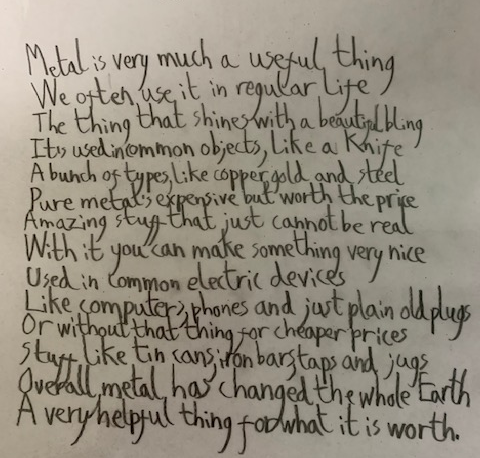 Metal is very much a useful thing
We often use it in regular life
The thing that shines with a beautiful bling
Its used in common objects, like a knife
A bunch of types, like copper, gold and steel
Pure metal's expensive but worth the price
Amazing stuff that just cannot be real
With it you can make something very nice
Used in common electric devices
Like computers, phones and just plain old plugs
Or without that thing for cheaper prices
Stuff like tin cans, iron bars, taps and jugs
Overall, metal has changed the whole Earth
A very helpful thing for what it is worth.